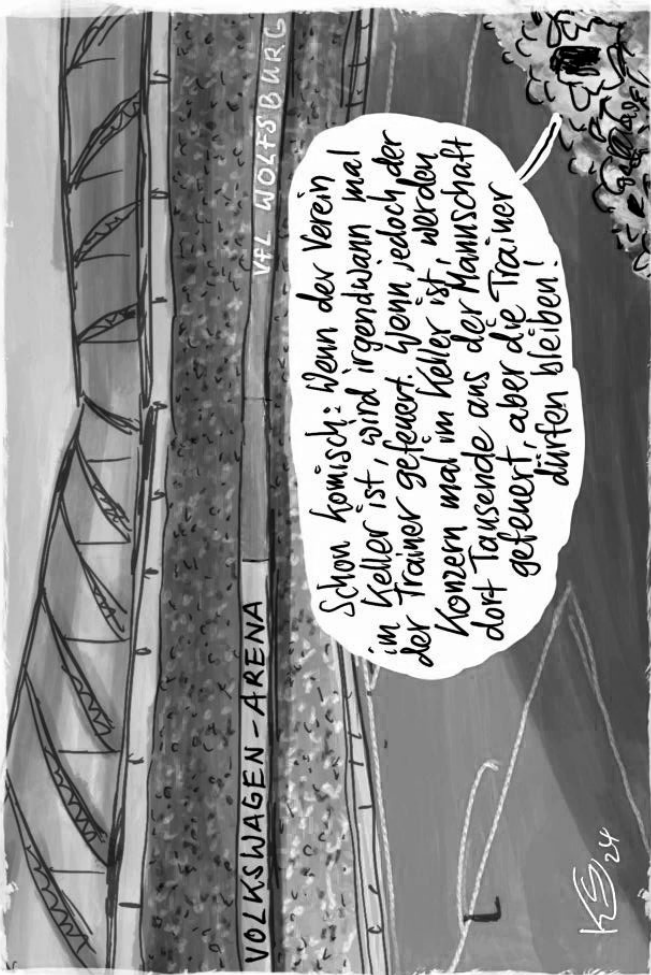 VOLKSWAGEN-ARENA
VfL WOLFSBURG
Schon komisch: Wenn der Verein
im Keller ist, wird irgendwann mal
der Trainer gefeuert. Wenn jedoch der
Konzern mal im Keller ist, werden
dort Tausende aus der Mannschaft
gefeuert, aber die Trainer
dürfen bleiben!
KS 24